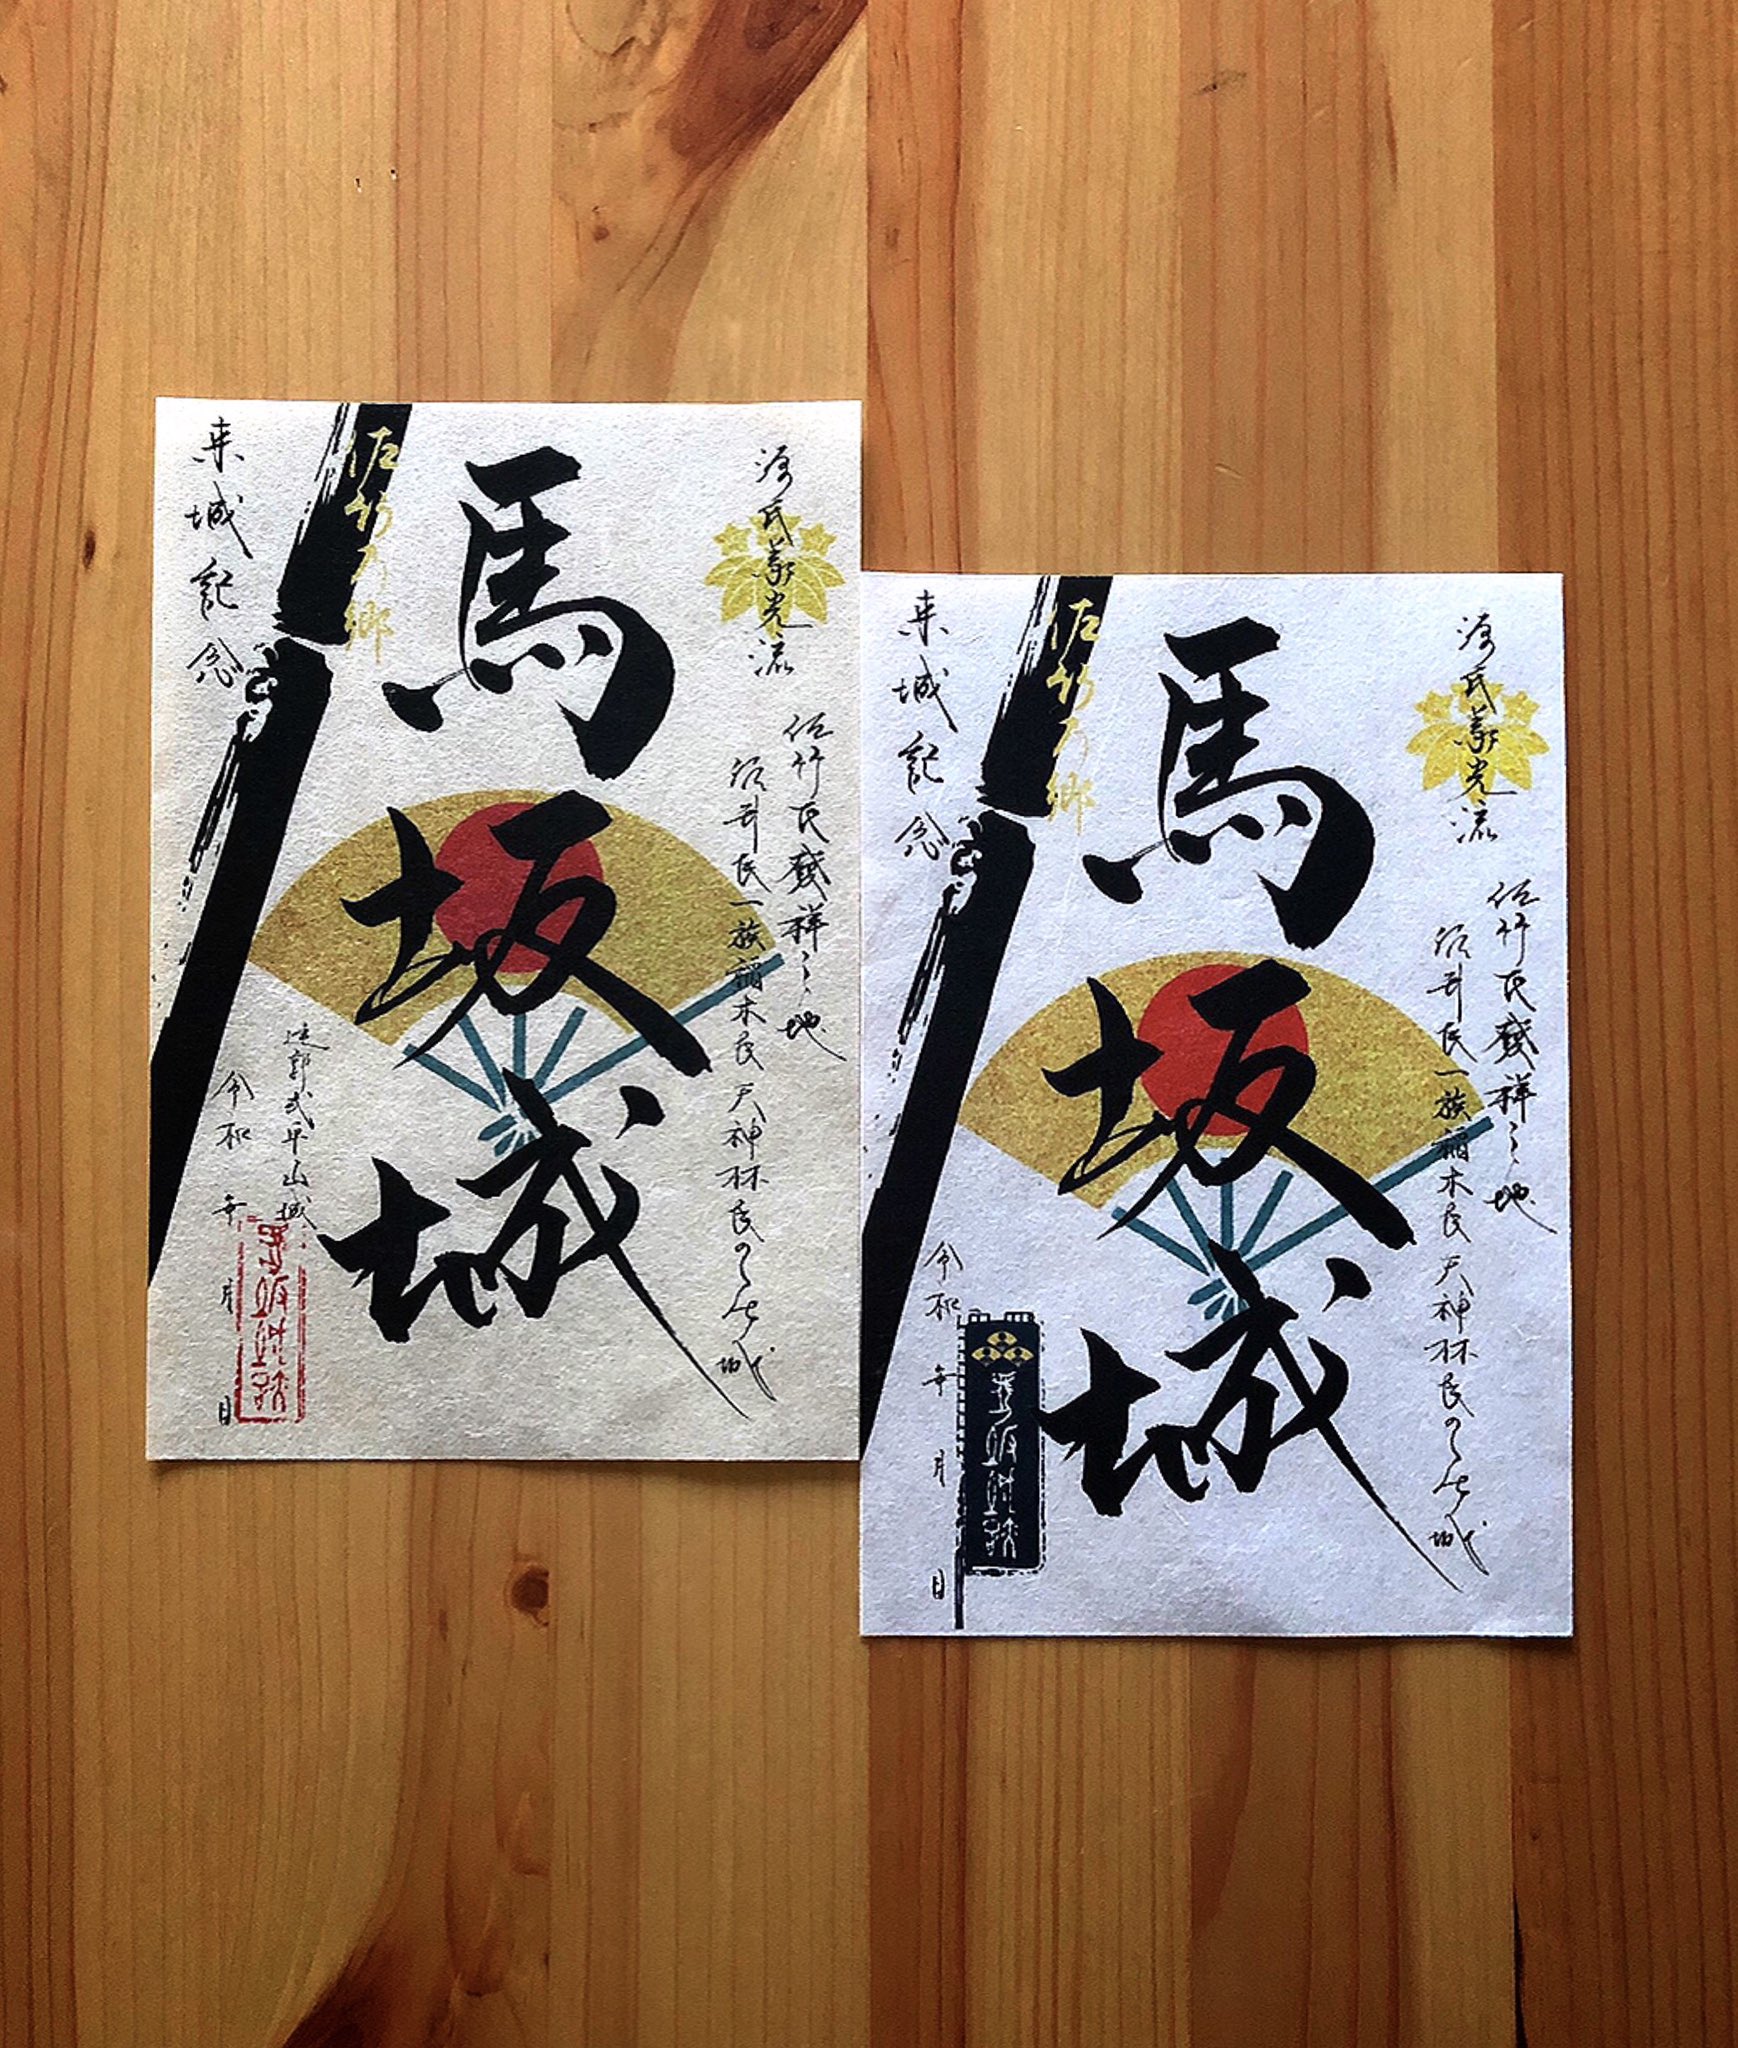 源氏義光流
佐竹氏發祥之地
一族稲木氏天神林氏のち
馬坂城
佐竹乃郷
来城記念
連郭式平山城
令和 年 月 日
馬坂城跡
源氏義光流
佐竹氏發祥之地
一族稲木氏天神林氏のち
馬坂城
佐竹乃郷
来城記念
令和 年 月 日
馬坂城跡